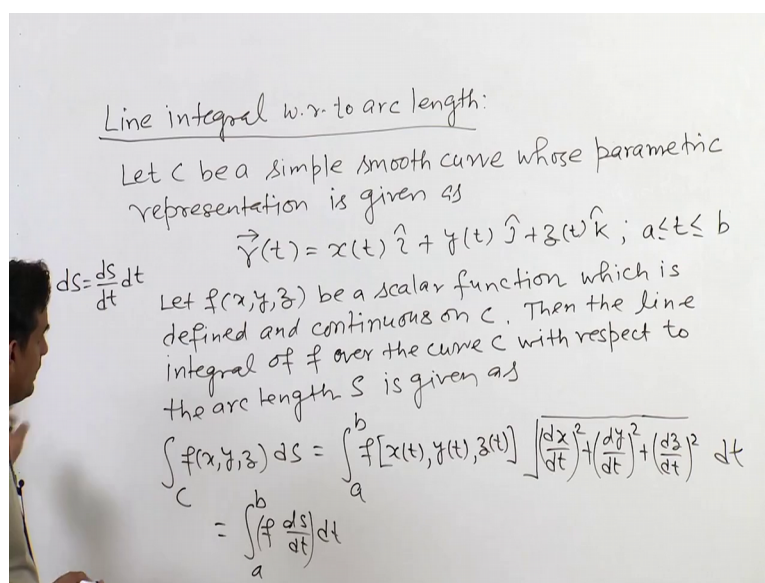 Line integral w.r. to arc length:
Let C be a simple smooth curve whose parametric
representation is given as
r⃗(t) = x(t) î + y(t) ĵ + z(t) k̂ ; a≤t≤ b
ds = ds/dt dt
Let f(x,y,z) be a scalar function which is
defined and continuous on C. Then the line
integral of f over the curve C with respect to
the arc length S is given as
∫_C f(x,y,z) ds = ∫_a^b f[x(t), y(t), z(t)] √((dx/dt)² + (dy/dt)² + (dz/dt)²) dt
= ∫_a^b (f ds/dt) dt